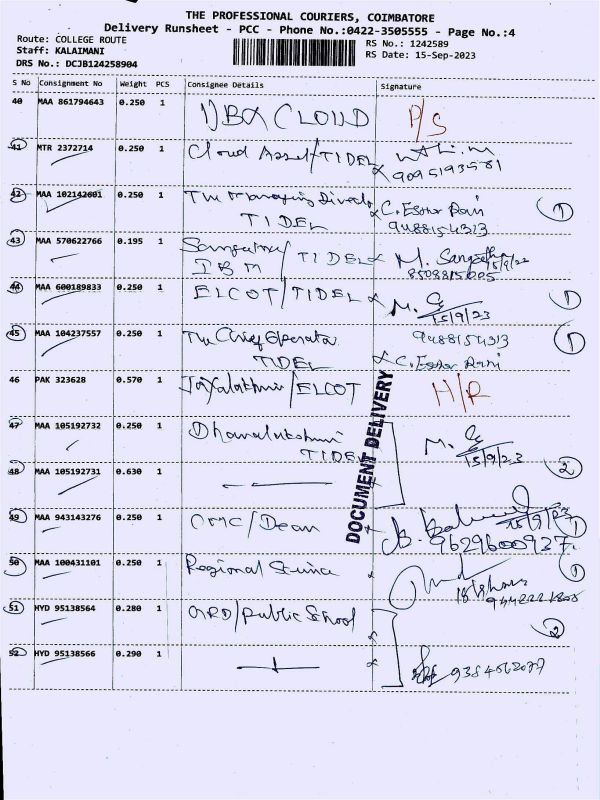 THE PROFESSIONAL COURIERS, COIMBATORE
Delivery Runsheet - PCC - Phone No.:0422-3505555 - Page No.:4
Route: COLLEGE ROUTE
RS No.: 1242589
Staff: KALAIMANI
RS Date: 15-Sep-2023
DRS No.: DCJB124258904
S No Consignment No Weight PCS Consignee Details Signature
40 MAA 861794643 0.250 1 CLOUD P/S
41 MTR 2372714 0.250 1 Cloud Asset/TIDEL 9095193581
42 MAA 102142601 0.250 1 The Managing Director C. Esther Rani 1
TIDEL 9488154313
43 MAA 570622766 0.195 1 Sangeetha/ TIDEL M. Sangeetha 15/9/23
IBM
44 MAA 600189833 0.250 1 ELCOT/TIDEL M. 15/9/23 1
45 MAA 104237557 0.250 1 The Chief Operator 9488154313 1
TIDEL C. Esther Rani
46 PAK 323628 0.570 1 Jayalakhmi/ELCOT H/R
DOCUMENT DELIVERY
47 MAA 105192732 0.250 1 Dhanalakshmi M. 15/9/23
TIDEL
48 MAA 105192731 0.630 1 2
49 MAA 943143276 0.250 1 CMC/Dean 15/9/23 1
9629600937.
50 MAA 100431101 0.250 1 Regional Science 1
51 HYD 95138564 0.280 1 GRD/Public School 2
52 HYD 95138566 0.290 1 9384562077